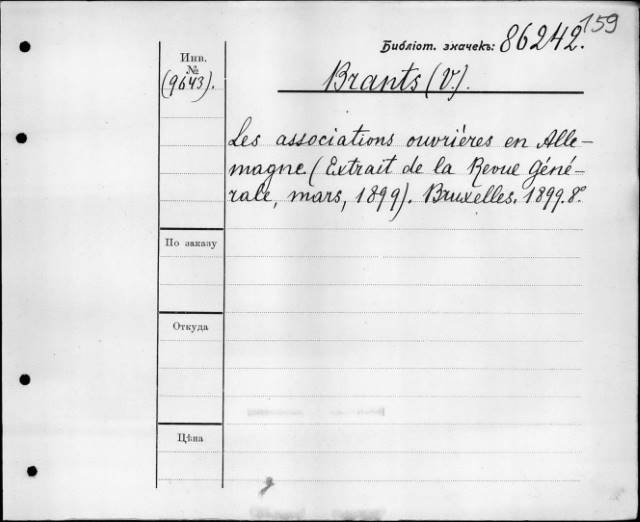 159
Библіот. значекъ: 86242.
Инв.
№
(9643).
Brants (V.).
Les associations ouvrières en Alle-
magne. (Extrait de la Revue Géné-
rale, mars, 1899). Bruxelles. 1899. 8º
По заказу
Откуда
Цѣна